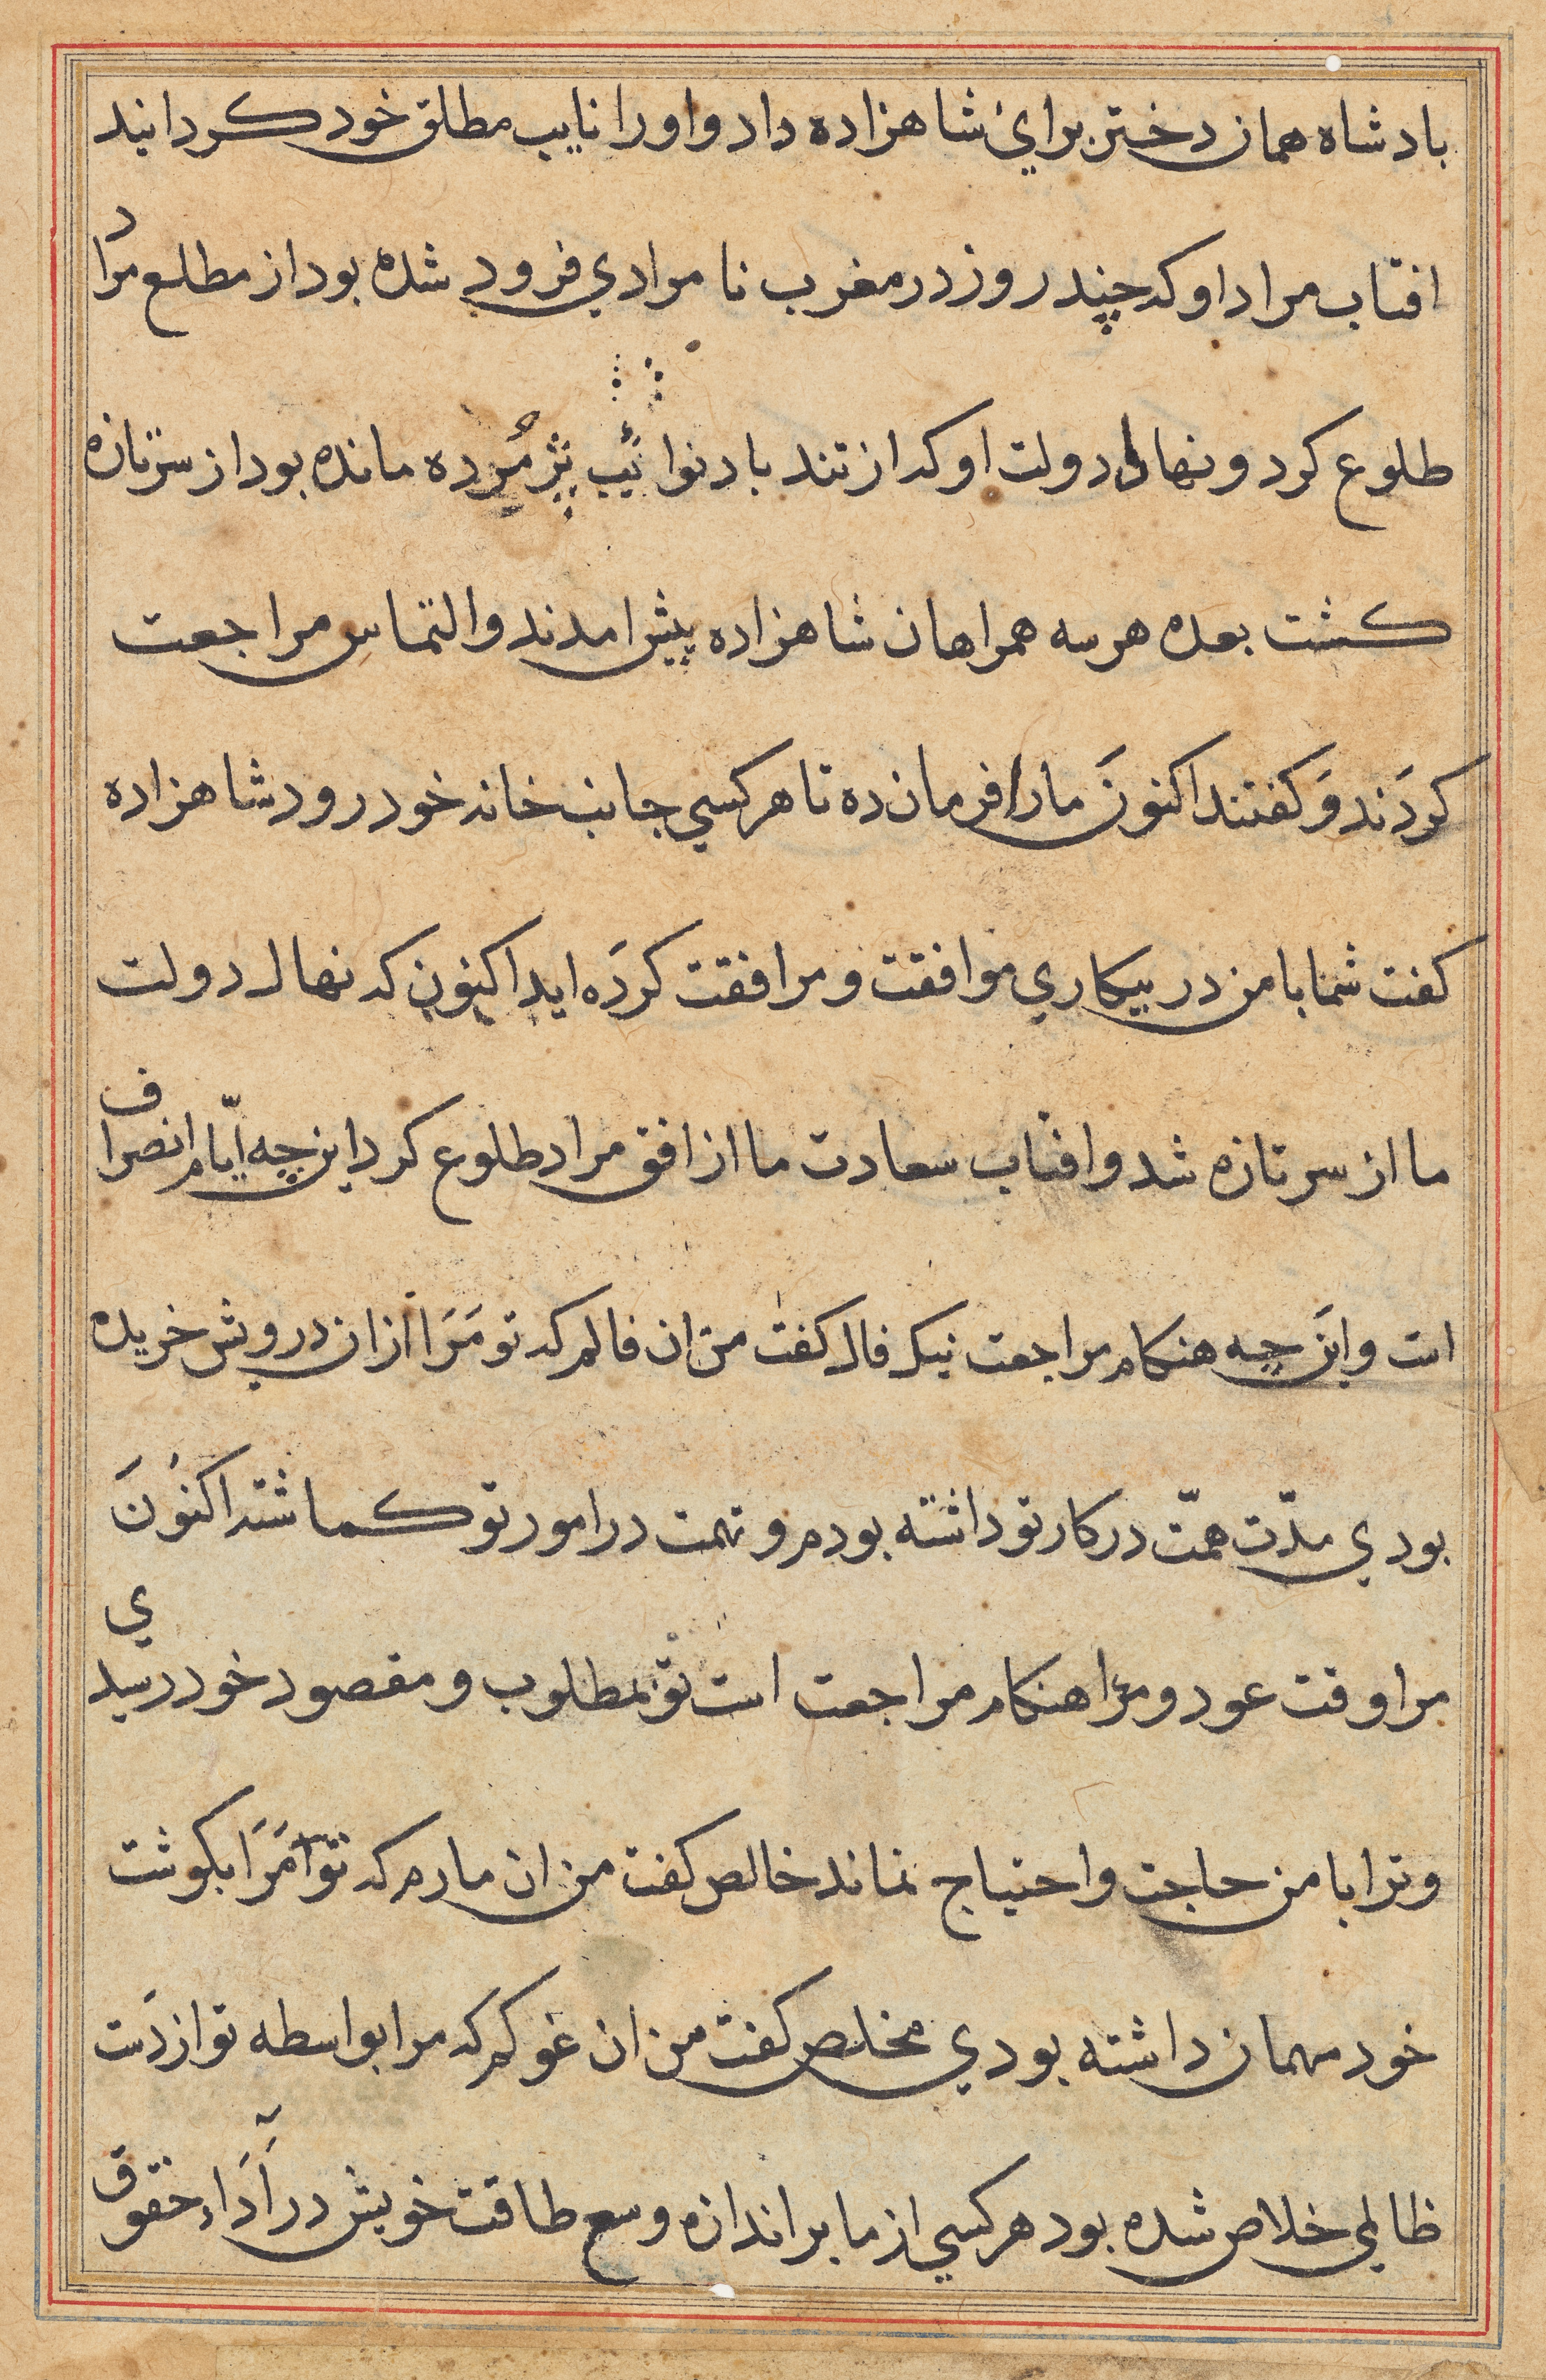 بادشاه همان دختر برای شاهزاده داد و او را نایب مطلق خود کردانید
افتاب مراد او که چند روز در مغرب نامرادي فرود شده بود از مطلع مراد
طلوع کرد و نهال دولت او که از تند باد نوائب پژمرده مانده بود از سر تازه
کشت بعده هر سه همراهان شاهزاده پیش امدند و التماس مراجعت
کردَند وَ کفتند اکنونَ مارا فرمان ده تا هر کسي جانب خانه خود رود شاهزاده
کفت شما با من در بیکاري موافقت و مرافقت کردَه اید اکنون که نهال دولت
ما از سر تازه شد و افتاب سعادت ما از افق مراد طلوع کرد این چه ایّام انصراف
است و این چه هنکام مراجعت نیک فال کفت من ان فالم که تو مَرَا ازان درویش خریده
بودي مدّت همّت در کار تو داشته بودم و نهمت در امور تو کماشته اکنُونَ
مرا وقت عود و مرا هنکام مراجعت است تو بمطلوب و مقصود خود رسیدي
و ترا با من حاجت و احتیاج نماند خالص کفت من ان مارم که تو مَرَا بکوشت
خود مهمان داشته بودي مخلص کفت من ان غوکم که مرا بواسطه تو از دَست
ظالمي خلاص شده بود هر کسي از ما بر اندازه وسع طاقت خویش در اَدَاء حقوق